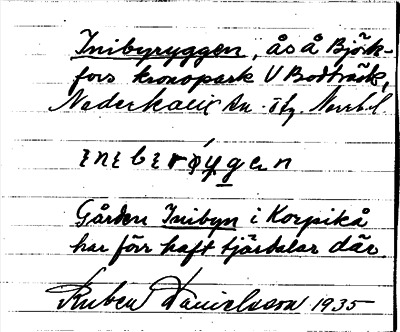 Inibyryggen, ås å Björk-
fors kronopark V Bodträsk,
Nederkalix sn. Tlg. Norrb. l.
ɩnɩbɩrǿygen
Gården Inibyn i Korpikå
har förr haft tjärdalar där.
Ruben Danielsson 1935